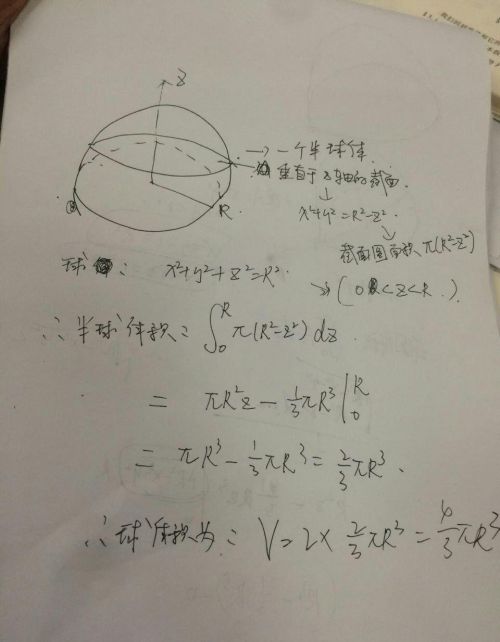 z
→ 一个半球体.
垂直于z轴的截面.
↓
x²+y²=R²-z².
R
截面圆面积π(R²-z²)
球: x²+y²+z²=R².
(0<z<R.)
∴半球体积: ∫₀ᴿ π(R²-z²)dz.
= πR²z - 1/3πR³ |₀ᴿ
= πR³ - 1/3πR³ = 2/3πR³.
∴球体积为: V=2× 2/3πR³ = 4/3πR³